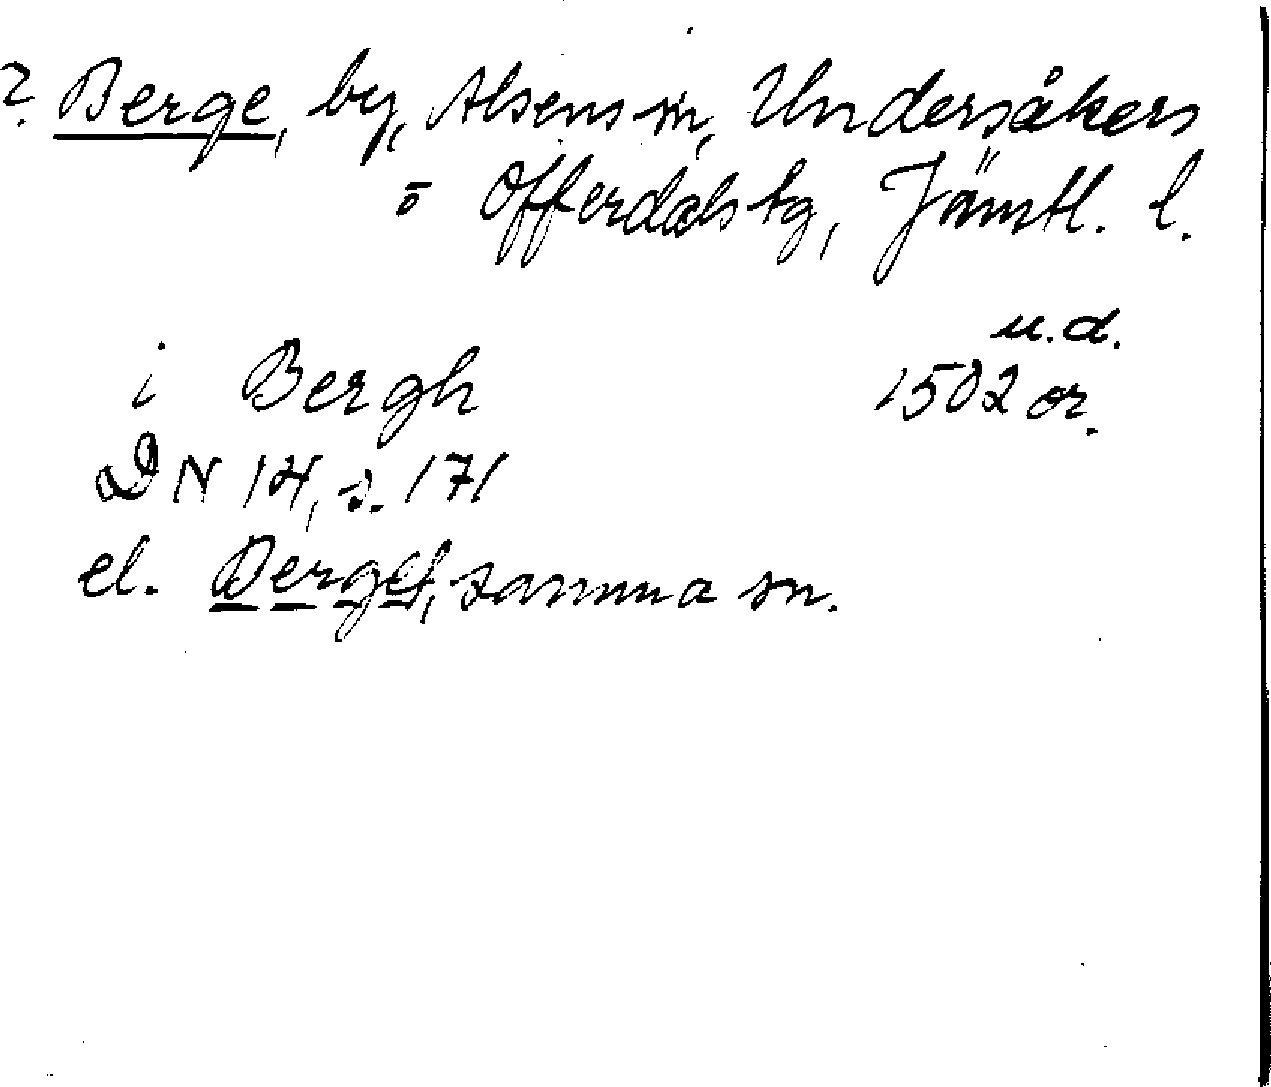 ? Berge, by, Alsens sn, Undersåkers
o Offerdals tg, Jämtl. l.
u.d.
i Bergh 1502 or.
DN 14, s. 171
el. Berget, samma sn.